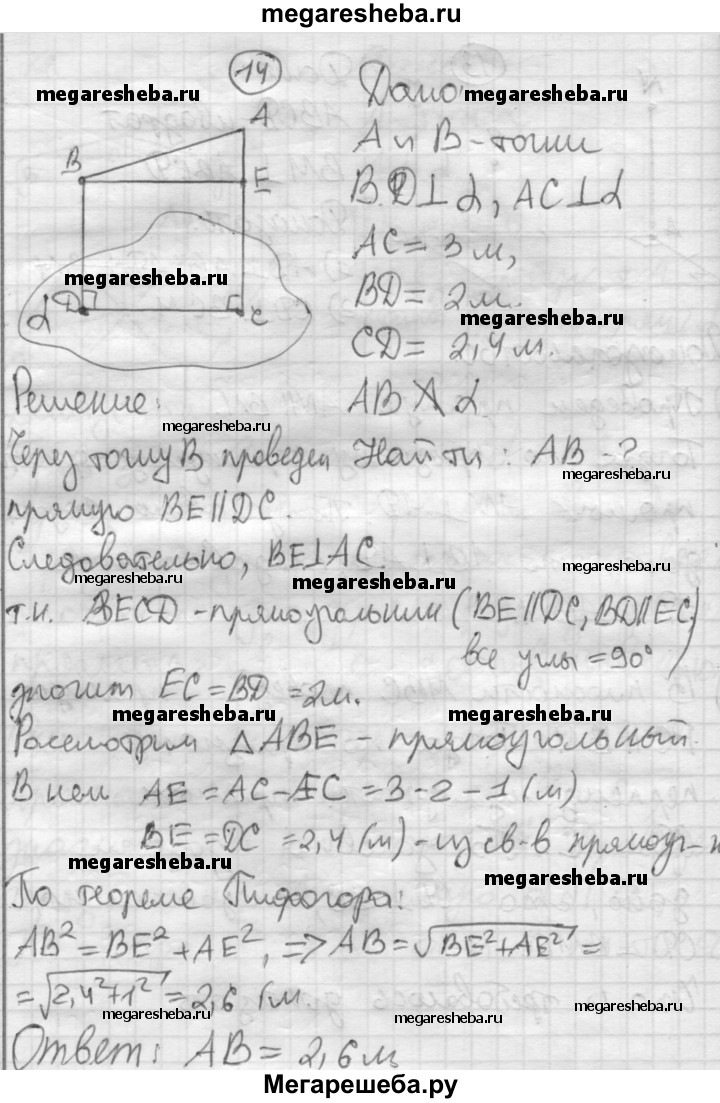 megaresheba.ru
14
Дано:
megaresheba.ru
megaresheba.ru
A
А и В - точки
B
E
BD⊥α, AC⊥α
AC = 3 м,
megaresheba.ru
BD = 2 м.
α D C
megaresheba.ru
CD = 2,4 м.
Решение:
AB α
megaresheba.ru
Через точку В проведем
Найти: AB - ?
megaresheba.ru
прямую BE||DC.
Следовательно, BE⊥AC
megaresheba.ru
megaresheba.ru
megaresheba.ru
т.к. BECD - прямоугольник (BE||DC, BD||EC,
все углы = 90°)
значит EC = BD = 2м.
megaresheba.ru
megaresheba.ru
Рассмотрим △ABE - прямоугольный.
В нем AE = AC - EC = 3 - 2 - 1 (м)
BE = DC = 2,4 (м) - из св-в прямоуг-к
megaresheba.ru
megaresheba.ru
По теореме Пифагора:
AB² = BE² + AE², => AB = √BE²+AE² =
= √2,4²+1² = 2,6 (м
megaresheba.ru
megaresheba.ru
megaresheba.ru
Ответ: AB = 2,6 м
Мегарешеба.ру